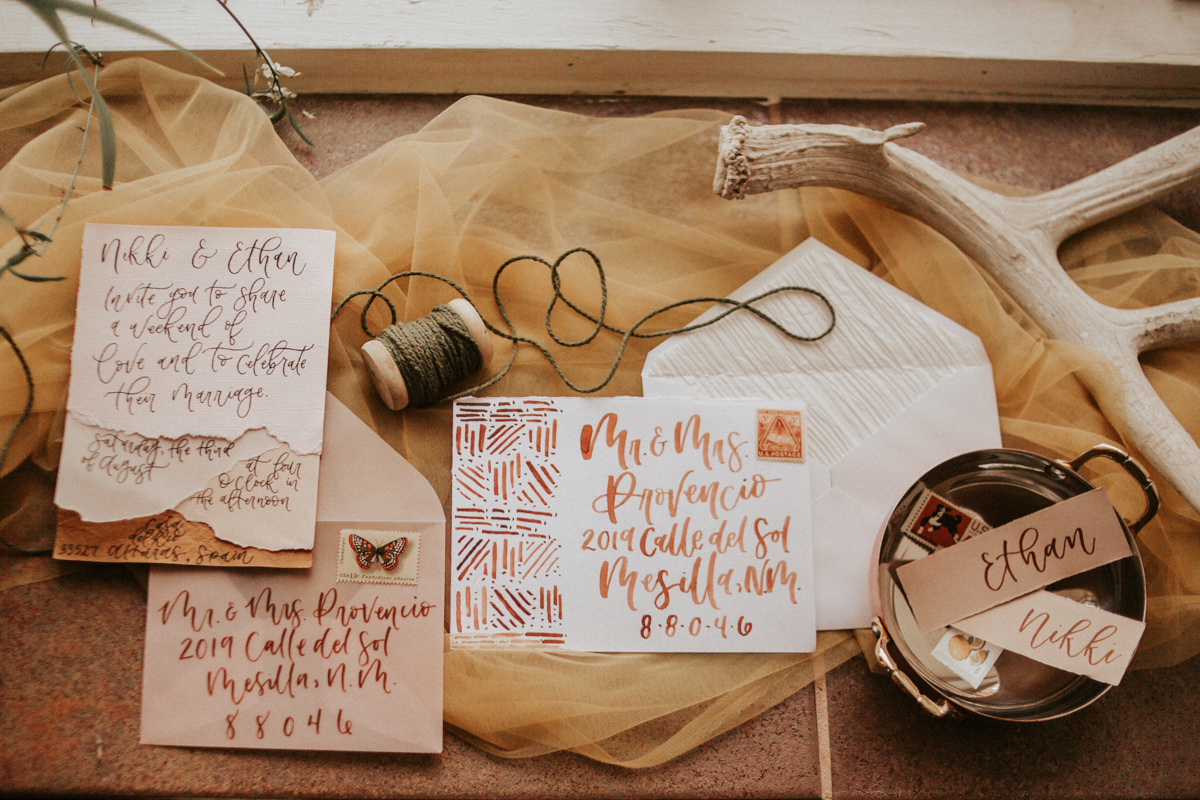 Nikki & Ethan
Invite you to share
a weekend of
Love and to celebrate
their marriage.
Saturday, the third
of August
at four
o'clock in
the afternoon
Casa
33527 Alturas, Spain
USA 13c
Mr. & Mrs. Provencio
2019 Calle del Sol
Mesilla, N.M.
8 8 0 4 6
U.S. POSTAGE
Mr. & Mrs.
Provencio
2019 Calle del Sol
Mesilla, N.M.
8-8-0-4-6
US
Ethan
Nikki